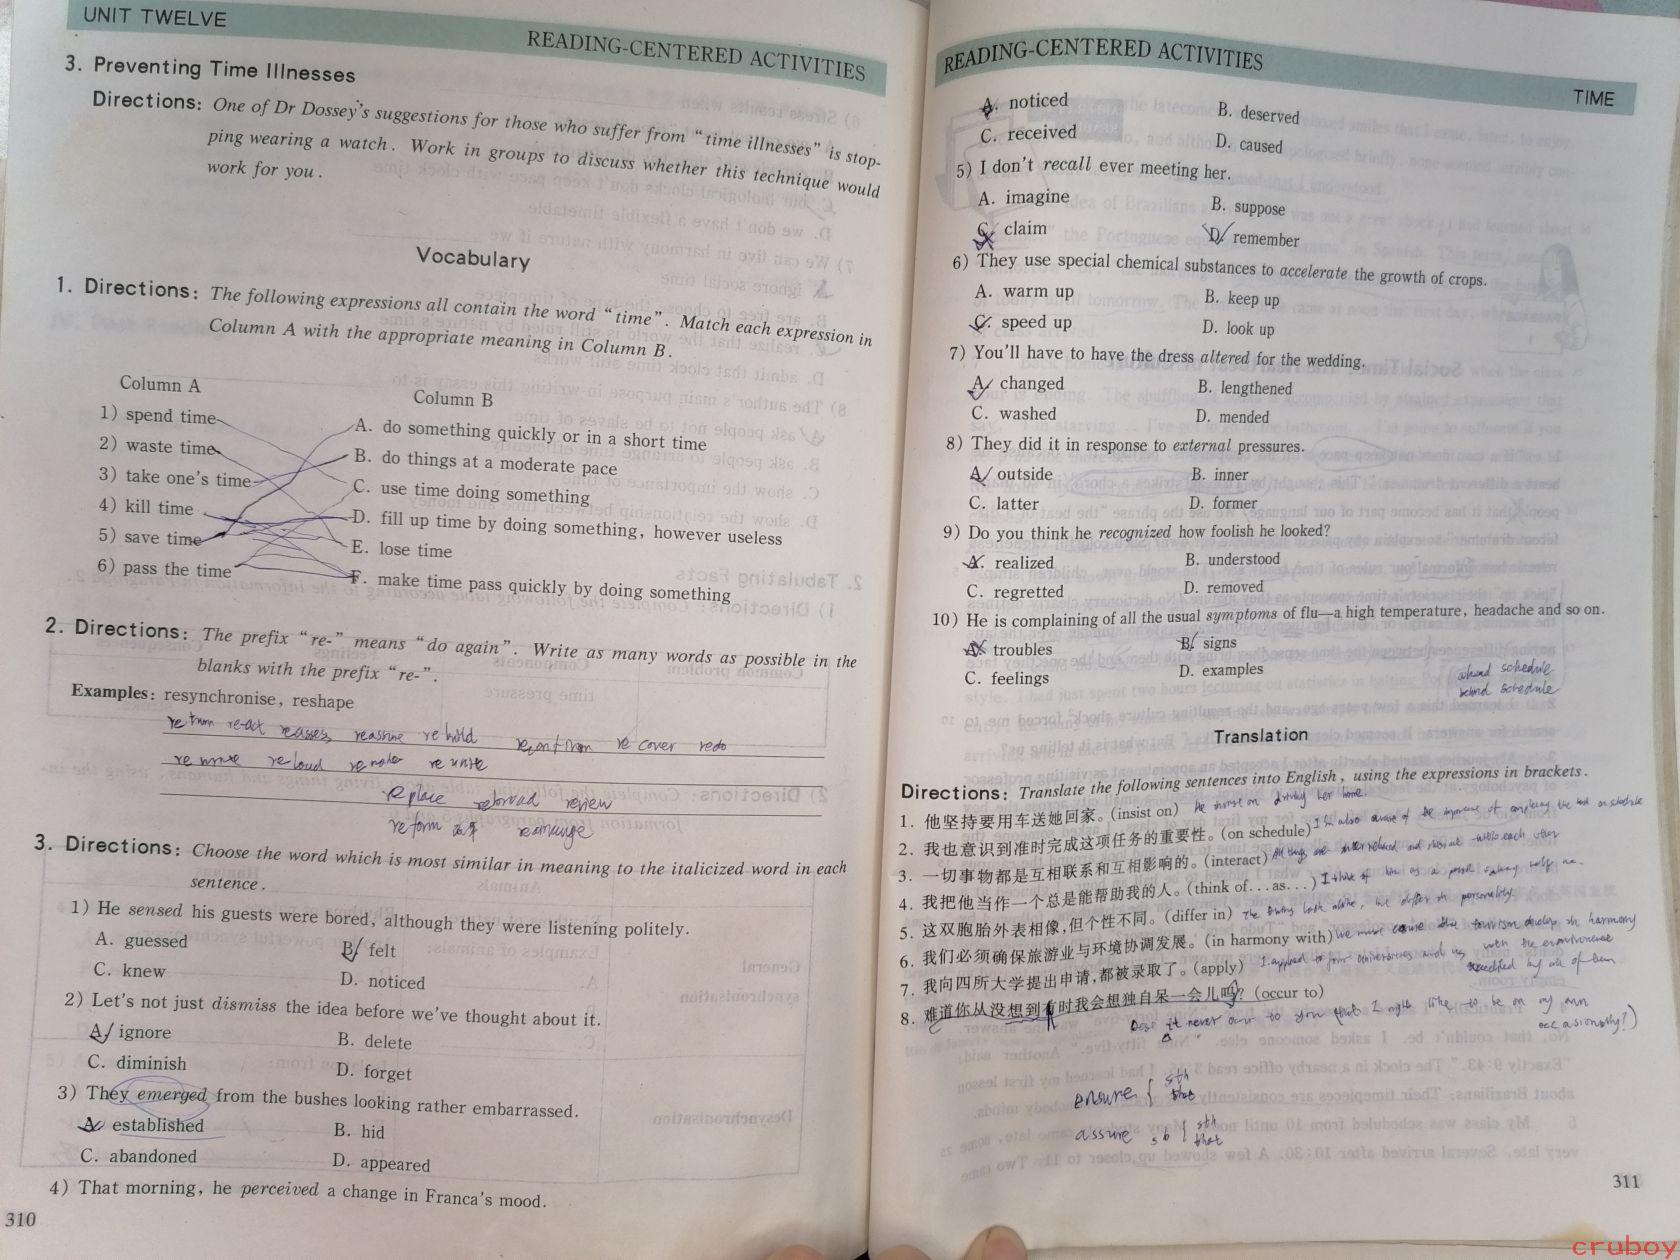 UNIT TWELVE
READING-CENTERED ACTIVITIES
3. Preventing Time Illnesses
Directions: One of Dr Dossey's suggestions for those who suffer from "time illnesses" is stop-
ping wearing a watch. Work in groups to discuss whether this technique would
work for you.
Vocabulary
1. Directions: The following expressions all contain the word "time". Match each expression in
Column A with the appropriate meaning in Column B.
Column A
Column B
1) spend time
2) waste time
3) take one's time
4) kill time
5) save time
6) pass the time
A. do something quickly or in a short time
B. do things at a moderate pace
C. use time doing something
D. fill up time by doing something, however useless
E. lose time
F. make time pass quickly by doing something
2. Directions: The prefix "re-" means "do again". Write as many words as possible in the
blanks with the prefix "re-".
Examples: resynchronise, reshape
return react reassess reassure rebuild recover redo
reload remake reunite
replace reload review
reform rearrange
3. Directions: Choose the word which is most similar in meaning to the italicized word in each
sentence.
1) He sensed his guests were bored, although they were listening politely.
A. guessed B. felt
C. knew D. noticed
2) Let's not just dismiss the idea before we've thought about it.
A. ignore B. delete
C. diminish D. forget
3) They emerged from the bushes looking rather embarrassed.
A. established B. hid
C. abandoned D. appeared
4) That morning, he perceived a change in Franca's mood.
310
READING-CENTERED ACTIVITIES
TIME
A. noticed B. deserved
C. received D. caused
5) I don't recall ever meeting her.
A. imagine B. suppose
C. claim D. remember
6) They use special chemical substances to accelerate the growth of crops.
A. warm up B. keep up
C. speed up D. look up
7) You'll have to have the dress altered for the wedding.
A. changed B. lengthened
C. washed D. mended
8) They did it in response to external pressures.
A. outside B. inner
C. latter D. former
9) Do you think he recognized how foolish he looked?
A. realized B. understood
C. regretted D. removed
10) He is complaining of all the usual symptoms of flu—a high temperature, headache and so on.
A. troubles B. signs
C. feelings D. examples
ahead schedule
behind schedule
Translation
Directions: Translate the following sentences into English, using the expressions in brackets.
1. 他坚持要用车送她回家。(insist on) He insist on driving her home.
2. 我也意识到准时完成这项任务的重要性。(on schedule) I'm also aware of the importance of completing the task on schedule
3. 一切事物都是互相联系和互相影响的。(interact) All things are interrelated and interact with each other
4. 我把他当作一个总是能帮助我的人。(think of...as...) I think of him as a
5. 这双胞胎外表相像,但个性不同。(differ in) The look alike, but differ in personality
6. 我们必须确保旅游业与环境协调发展。(in harmony with) We must tourism develop in harmony
with the environment
7. 我向四所大学提出申请,都被录取了。(apply) I applied to four universities and was accepted by all of them
8. 难道你从没想到有时我会想独自呆一会儿吗? (occur to)
Does it never occur to you that I might like to be on my own
occasionally?
ensure { sth
that
assure sb { sth
that
311
cruboy